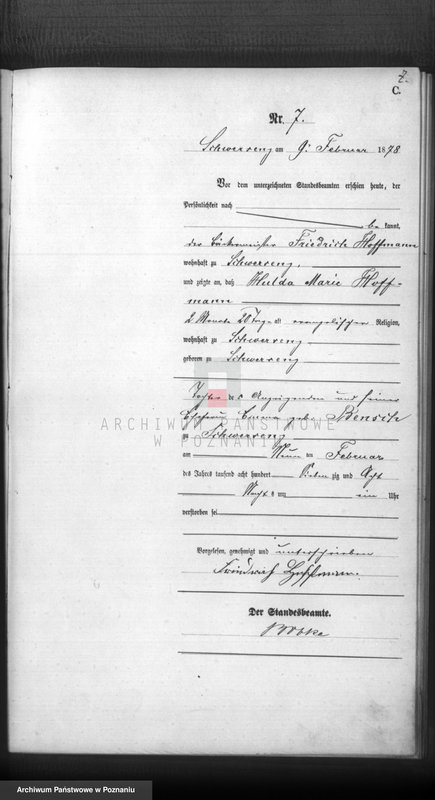 7.
C.
Nr. 7.
Schwersenz am 9. Februar 1878
Vor dem unterzeichneten Standesbeamten erschien heute, der
Persönlichkeit nach
be kannt,
der Bäckermeister Friedrich Hoffmann
wohnhaft zu Schwersenz,
und zeigte an, daß Hulda Marie Hoff-
mann
2 Monate 20 Tage alt evangelischer Religion,
wohnhaft zu Schwersenz
geboren zu Schwersenz
Tochter des Anzeigenden und seiner
Ehefrau Emma geb.
zu Schwersenz
am Neun ten Februar
des Jahrs tausend acht hundert Sieben zig und Acht
Nachts um ein Uhr
verstorben sei
Vorgelesen, genehmigt und unterschrieben
Friedrich Hoffmann.
Der Standesbeamte.
ARCHIWUM PAŃSTWOWE
W POZNANIU
Archiwum Państwowe w Poznaniu